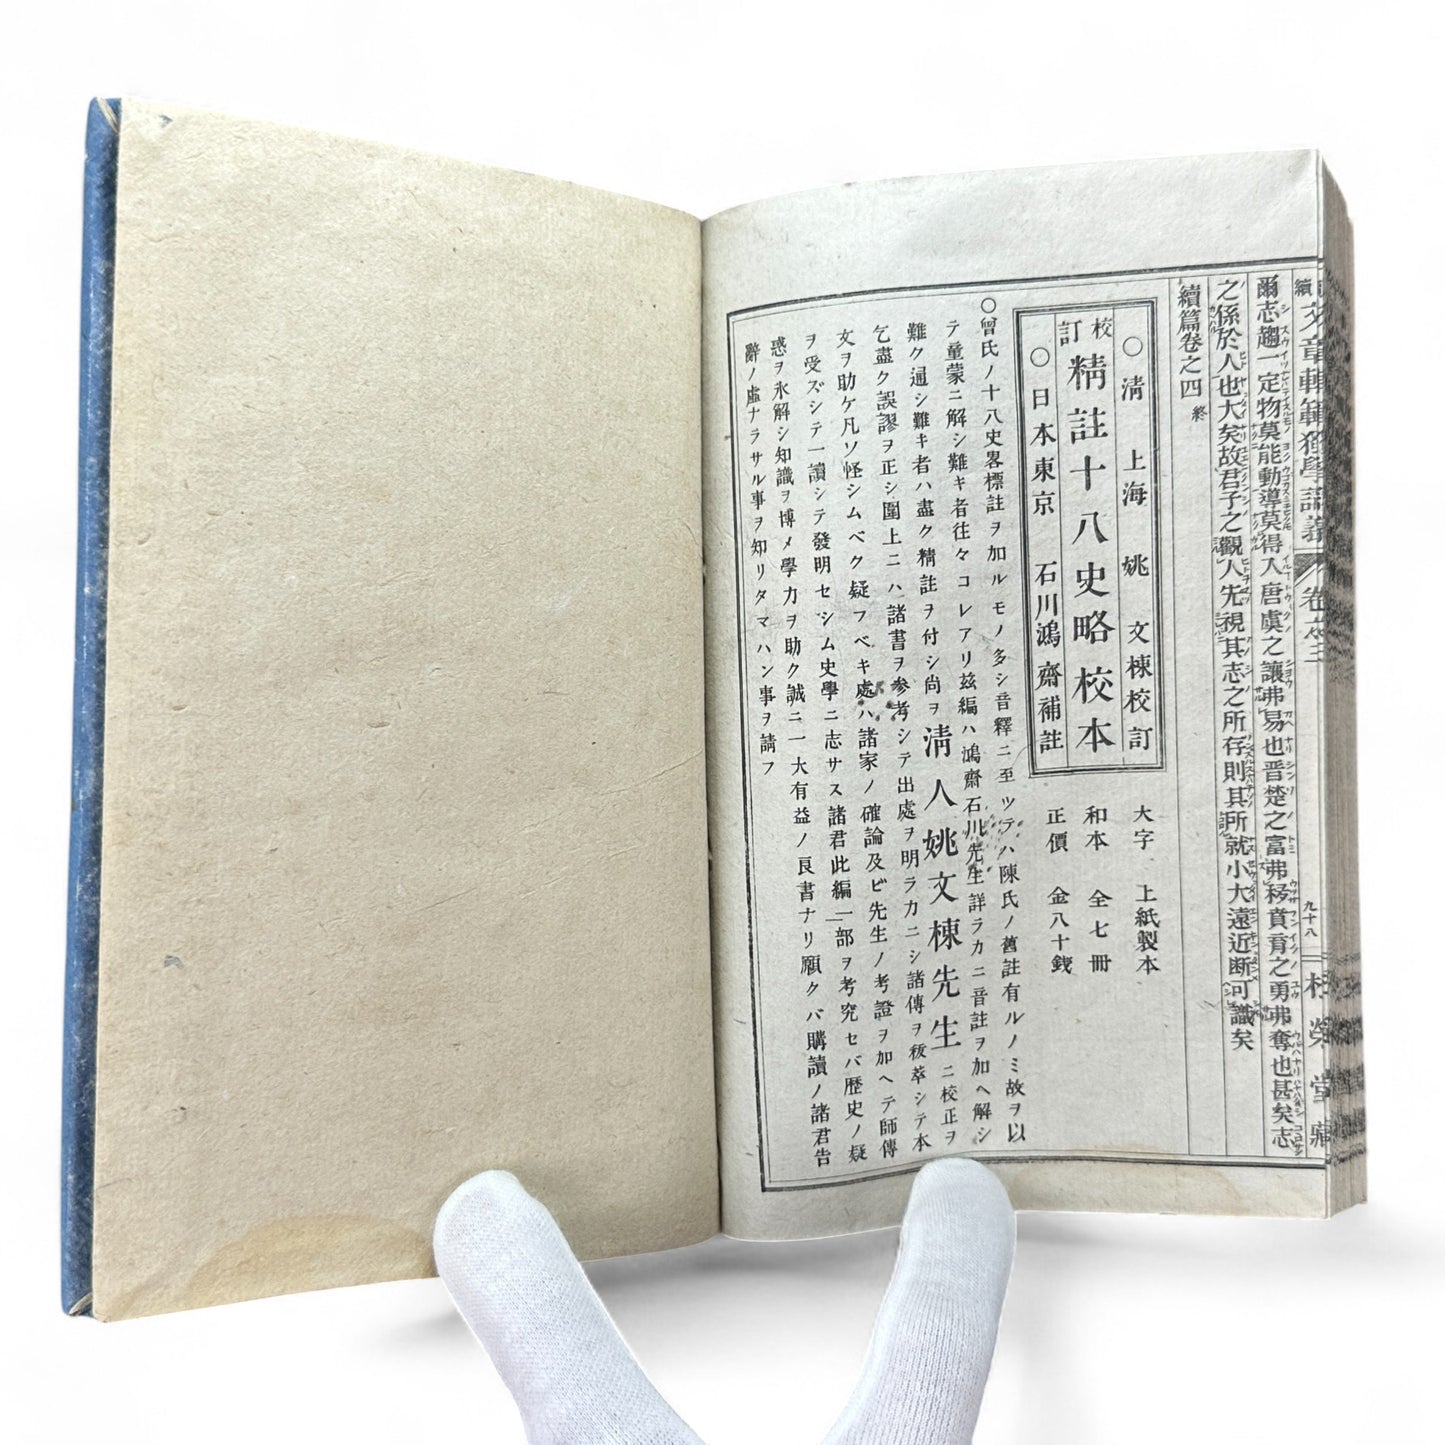 續文章軌範獨學講義 卷之三 九十八 松榮堂藏
爾志趨一定物莫能動導莫得入唐虞之讓弗易也晋楚之富弗移賁育之勇弗奪也甚矣志
之係於人也大矣故君子之觀人先視其志之所存則其所就小大遠近断可識矣
續篇卷之四 終
○清 上海 姚 文棟校訂
校訂 精註十八史略校本
○日本東京 石川鴻齋補註
大字 上紙製本
和本 全七冊
正價 金八十錢
○曾氏ノ十八史畧標註ヲ加ルモノ多シ音釋ニ至ツテハ陳氏ノ舊註有ルノミ故ヲ以
テ童蒙ニ解シ難キ者往々コレアリ玆編ハ鴻齋石川先生詳ラカニ音註ヲ加ヘ解シ
難ク通シ難キ者ハ盡ク精註ヲ付シ尚ヲ清人姚文棟先生ニ校正ヲ
乞盡ク誤謬ヲ正シ圍上ニハ諸書ヲ参考シテ出處ヲ明ラカニシ諸傳ヲ秡萃シテ本
文ヲ助ケ凡ソ怪シムベク疑フベキ處ハ諸家ノ確論及ビ先生ノ考證ヲ加ヘテ師傳
ヲ受ズシテ一讀シテ發明セシム史學ニ志サス諸君此編一部ヲ考究セバ歴史ノ疑
惑ヲ氷解シ知識ヲ博メ學力ヲ助ク誠ニ一大有益ノ良書ナリ願クバ購讀ノ諸君告
辭ノ虛ナラサル事ヲ知リタマハン事ヲ請フ